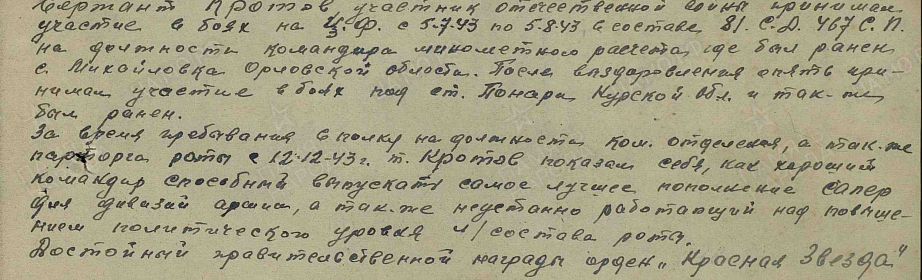 Сержант Кротов участник отечественной войны принимал
участие в боях на Ц.Ф. с 5.7.43 по 5.8.43 в составе 81. С.Д. 467 С.П.
на должности командира минометного расчета где был ранен
с. Михайловка Орловской области. После выздоровления опять при-
нимал участие в боях под ст. Понари Курской обл. и так-же
был ранен.
За время пребывания в полку на должности ком. отделения, а так-же
парторга роты с 12.12.43 г. т. Кротов показал себя, как хороший
командир способный выпускать самое лучшее пополнение сапер
для дивизий армии, а так-же неустанно работающий над повыше-
нием политического уровня л/состава роты.
Достойный правительственной награды орден „Красная Звезда"